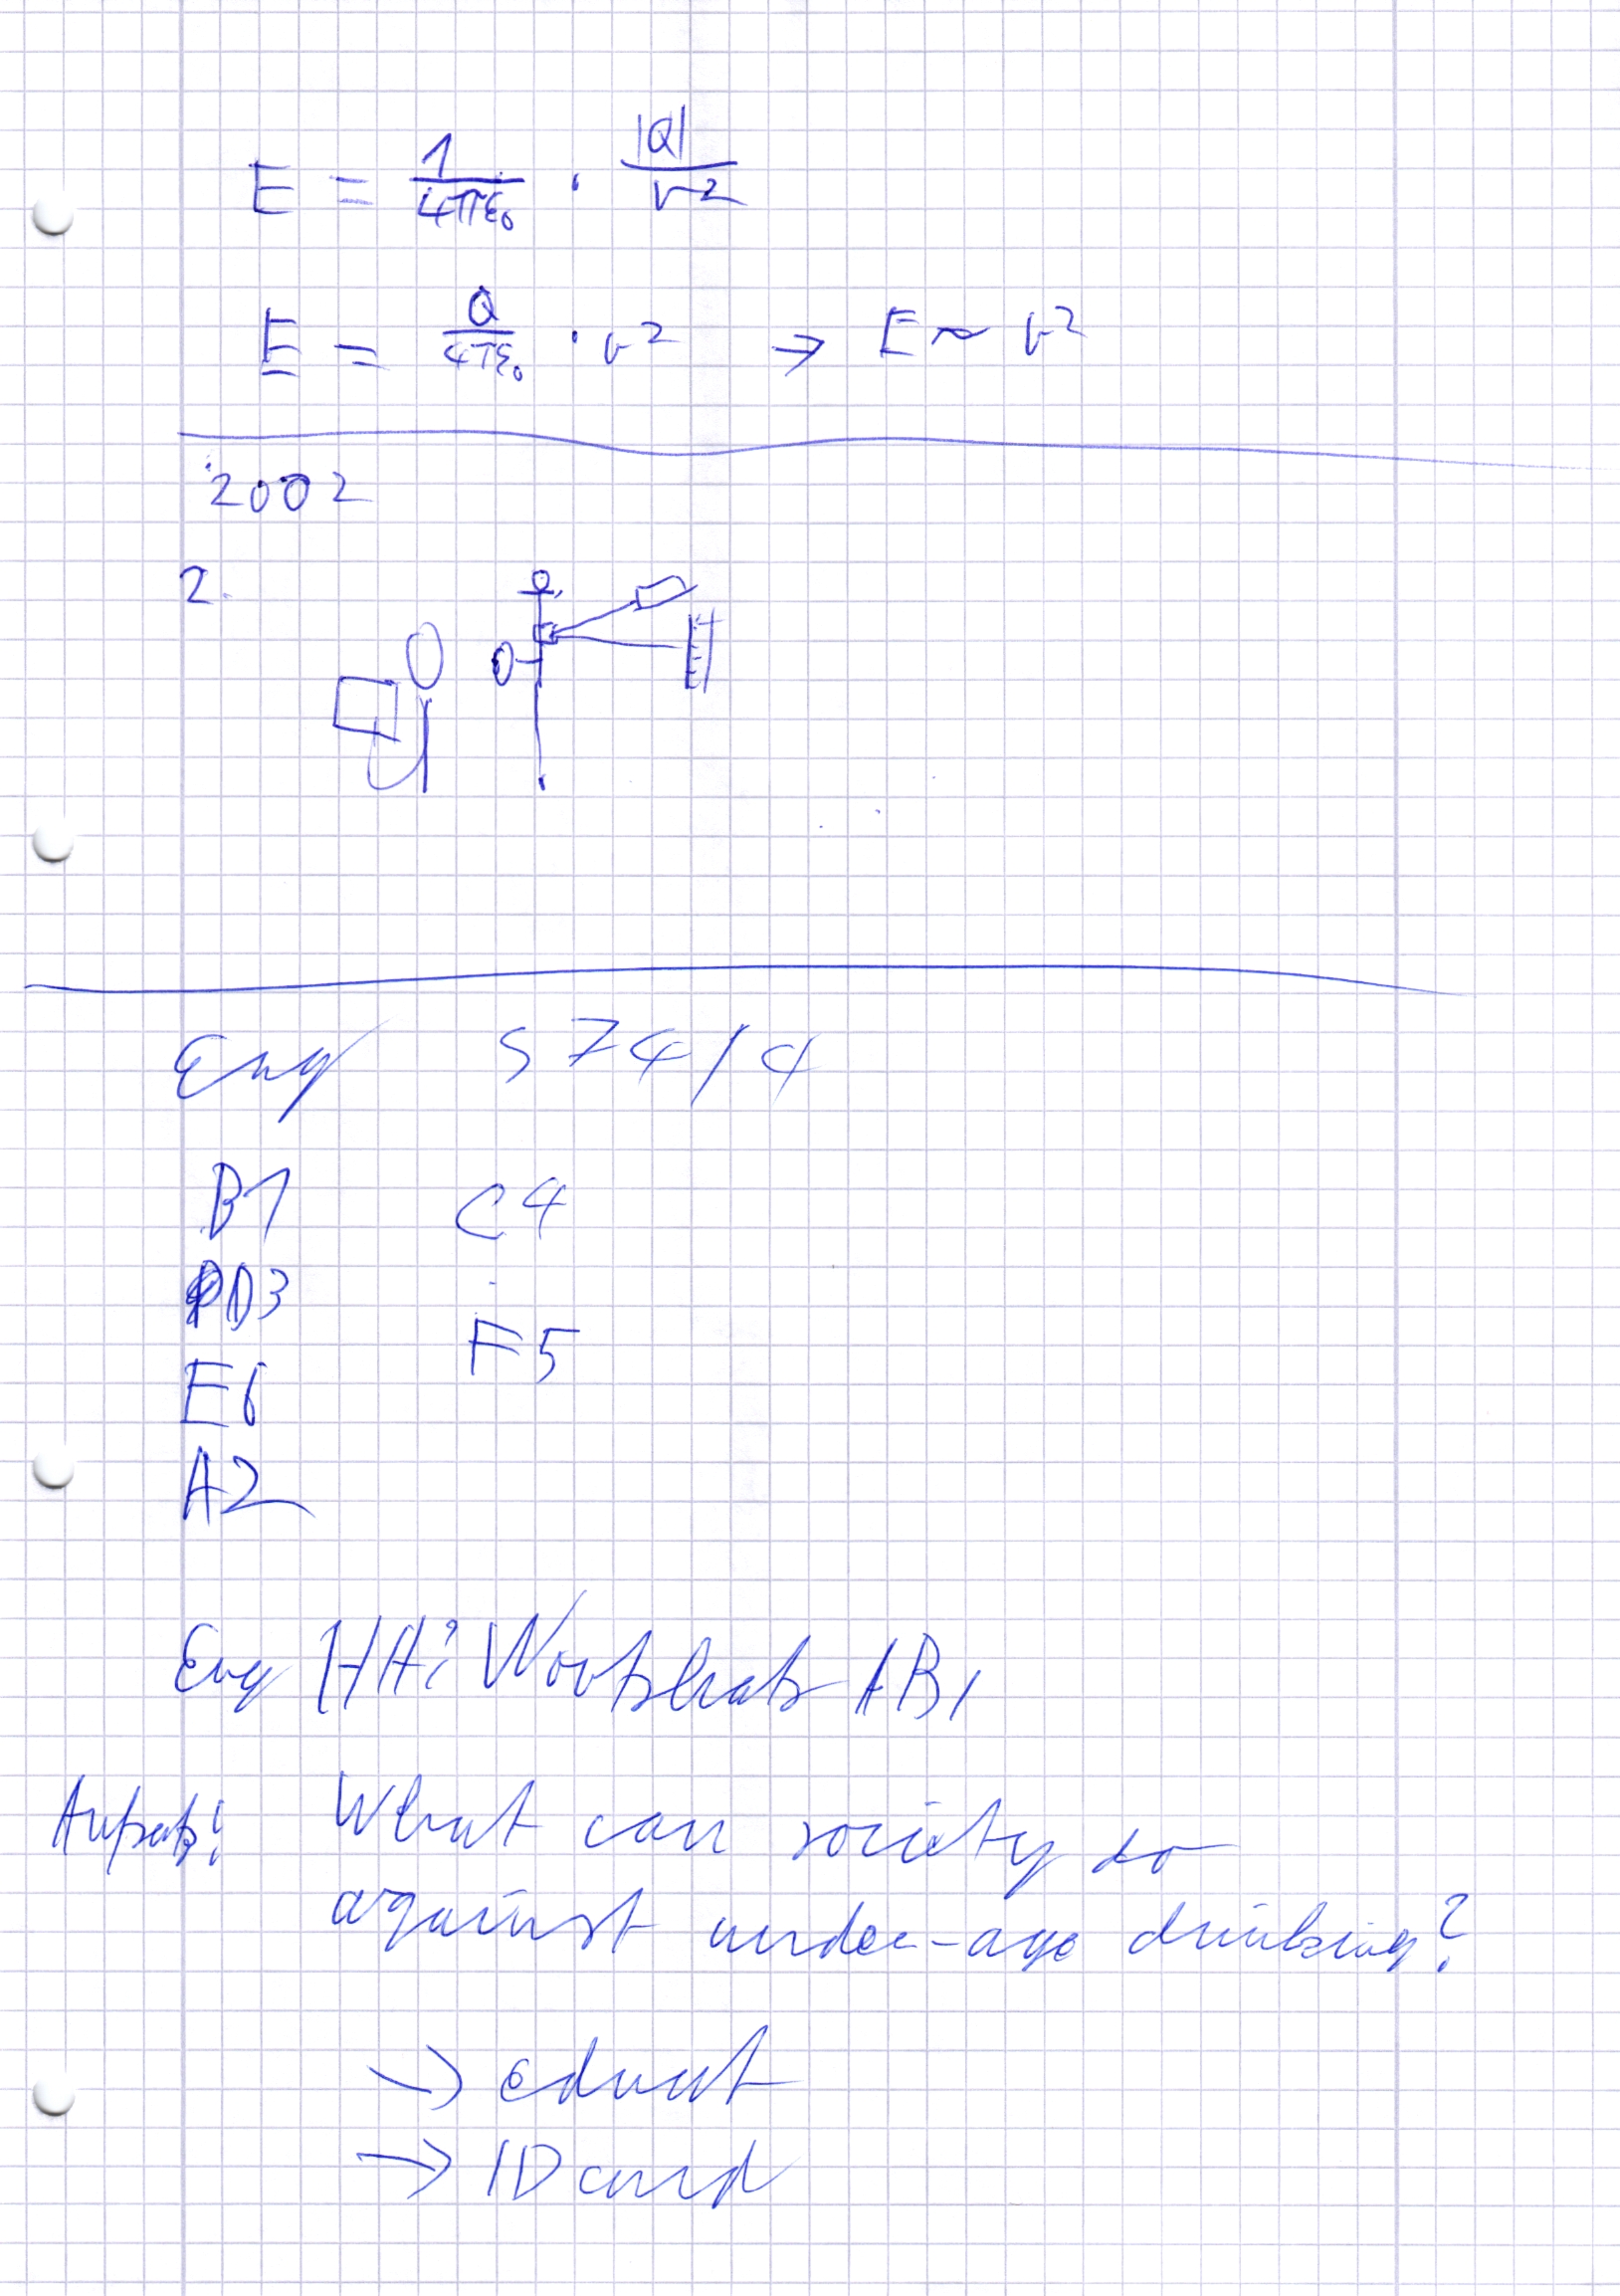 E = 1/4πε₀ · |Q|/r²
E = Q/4πε₀ · r² → E ~ r²
2002
2.
Eng S 74/4
B1 C4
D3
F5
E6
A2
Eng HA: AB,
Aufsatz: What can society do
against under-age drinking?
→ educat
→ ID card